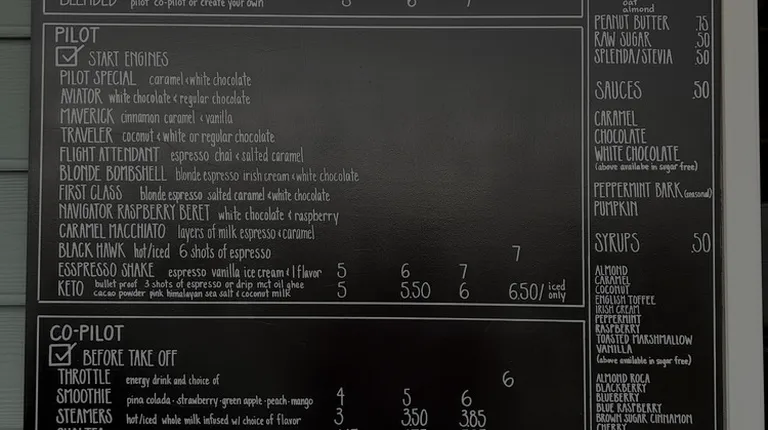 BLENDED pilot co-pilot or create your own 5 6 7
PILOT
START ENGINES
PILOT SPECIAL caramel & white chocolate
AVIATOR white chocolate & regular chocolate
MAVERICK cinnamon caramel & vanilla
TRAVELER coconut & white or regular chocolate
FLIGHT ATTENDANT espresso chai & salted caramel
BLONDE BOMBSHELL blonde espresso irish cream & white chocolate
FIRST CLASS blonde espresso salted caramel & white chocolate
NAVIGATOR RASPBERRY BERET white chocolate & raspberry
CARAMEL MACCHIATO layers of milk espresso & caramel
BLACK HAWK hot/iced 6 shots of espresso 7
ESSPRESSO SHAKE espresso vanilla ice cream & 1 flavor 5 6 7
KETO bullet proof 3 shots of espresso or drip mct oil ghee
cacao powder pink himalayan sea salt & coconut milk 5 5.50 6 6.50/ iced only
CO-PILOT
BEFORE TAKE OFF
THROTTLE energy drink and choice of 6
SMOOTHIE pina colada · strawberry · green apple · peach · mango 4 5 6
STEAMERS hot/iced whole milk infused w/ choice of flavor 3 3.50 3.85
oat
almond
PEANUT BUTTER .75
RAW SUGAR .50
SPLENDA/STEVIA .50
SAUCES .50
CARAMEL
CHOCOLATE
WHITE CHOCOLATE
(above availabe in sugar free)
PEPPERMINT BARK (seasonal)
PUMPKIN
SYRUPS .50
ALMOND
CARAMEL
COCONUT
ENGLISH TOFFEE
IRISH CREAM
PEPPERMINT
RASPBERRY
TOASTED MARSHMALLOW
VANILLA
(above available in sugar free)
ALMOND ROCA
BLACKBERRY
BLUEBERRY
BLUE RASPBERRY
BROWN SUGAR CINNAMON
CHERRY